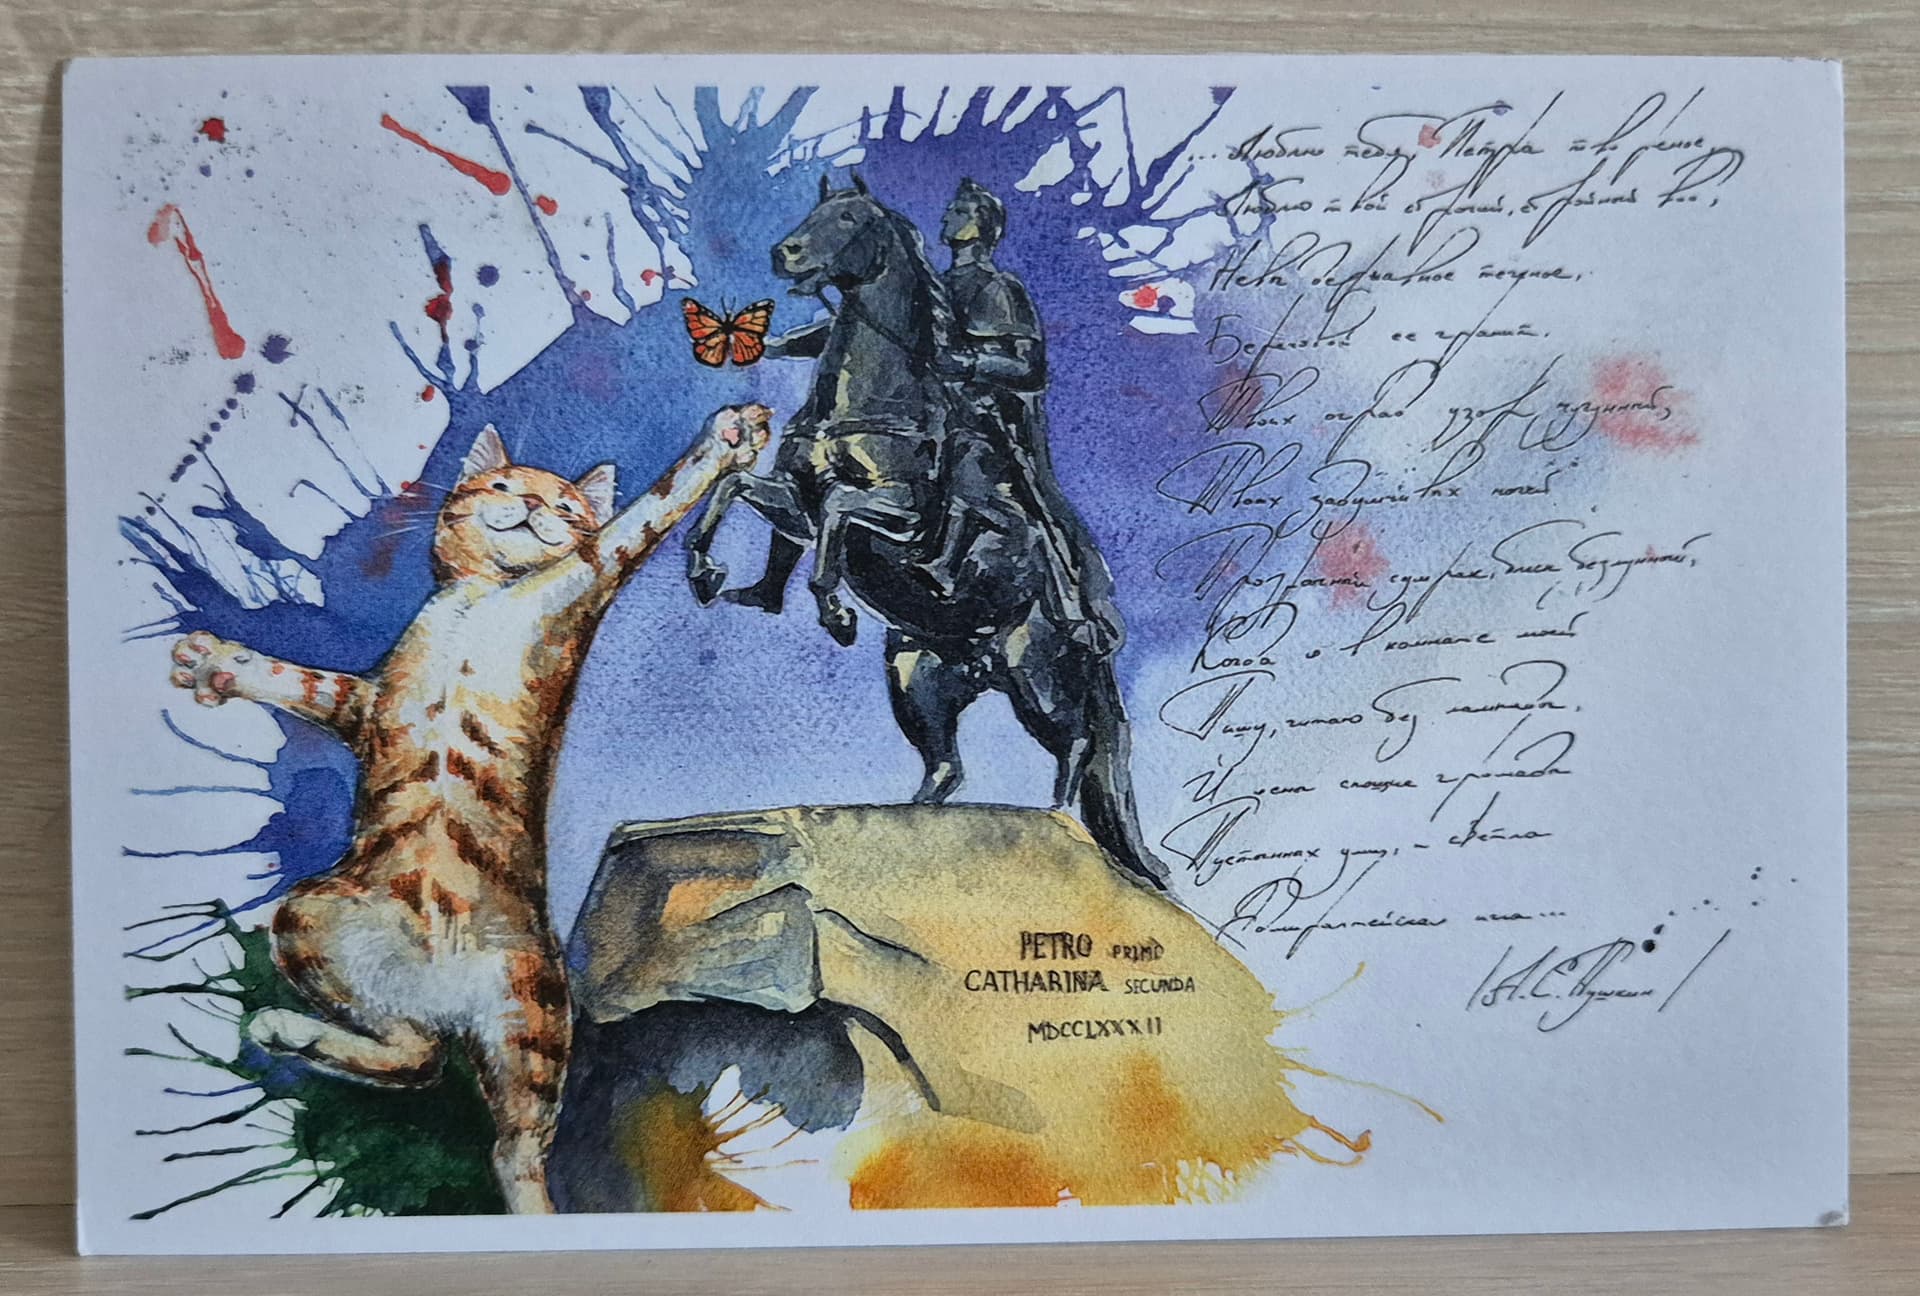 ...Люблю тебя, Петра творенье,
Люблю твой строгий, стройный вид,
Невы державное теченье,
Береговой ее гранит,
Твоих оград узор чугунный,
Твоих задумчивых ночей
Прозрачный сумрак, блеск безлунный,
Когда я в комнате моей
Пишу, читаю без лампады,
И ясны спящие громады
Пустынных улиц, и светла
Адмиралтейская игла...
/А.С.Пушкин/
PETRO PRIMO
CATHARINA SECUNDA
MDCCLXXXII